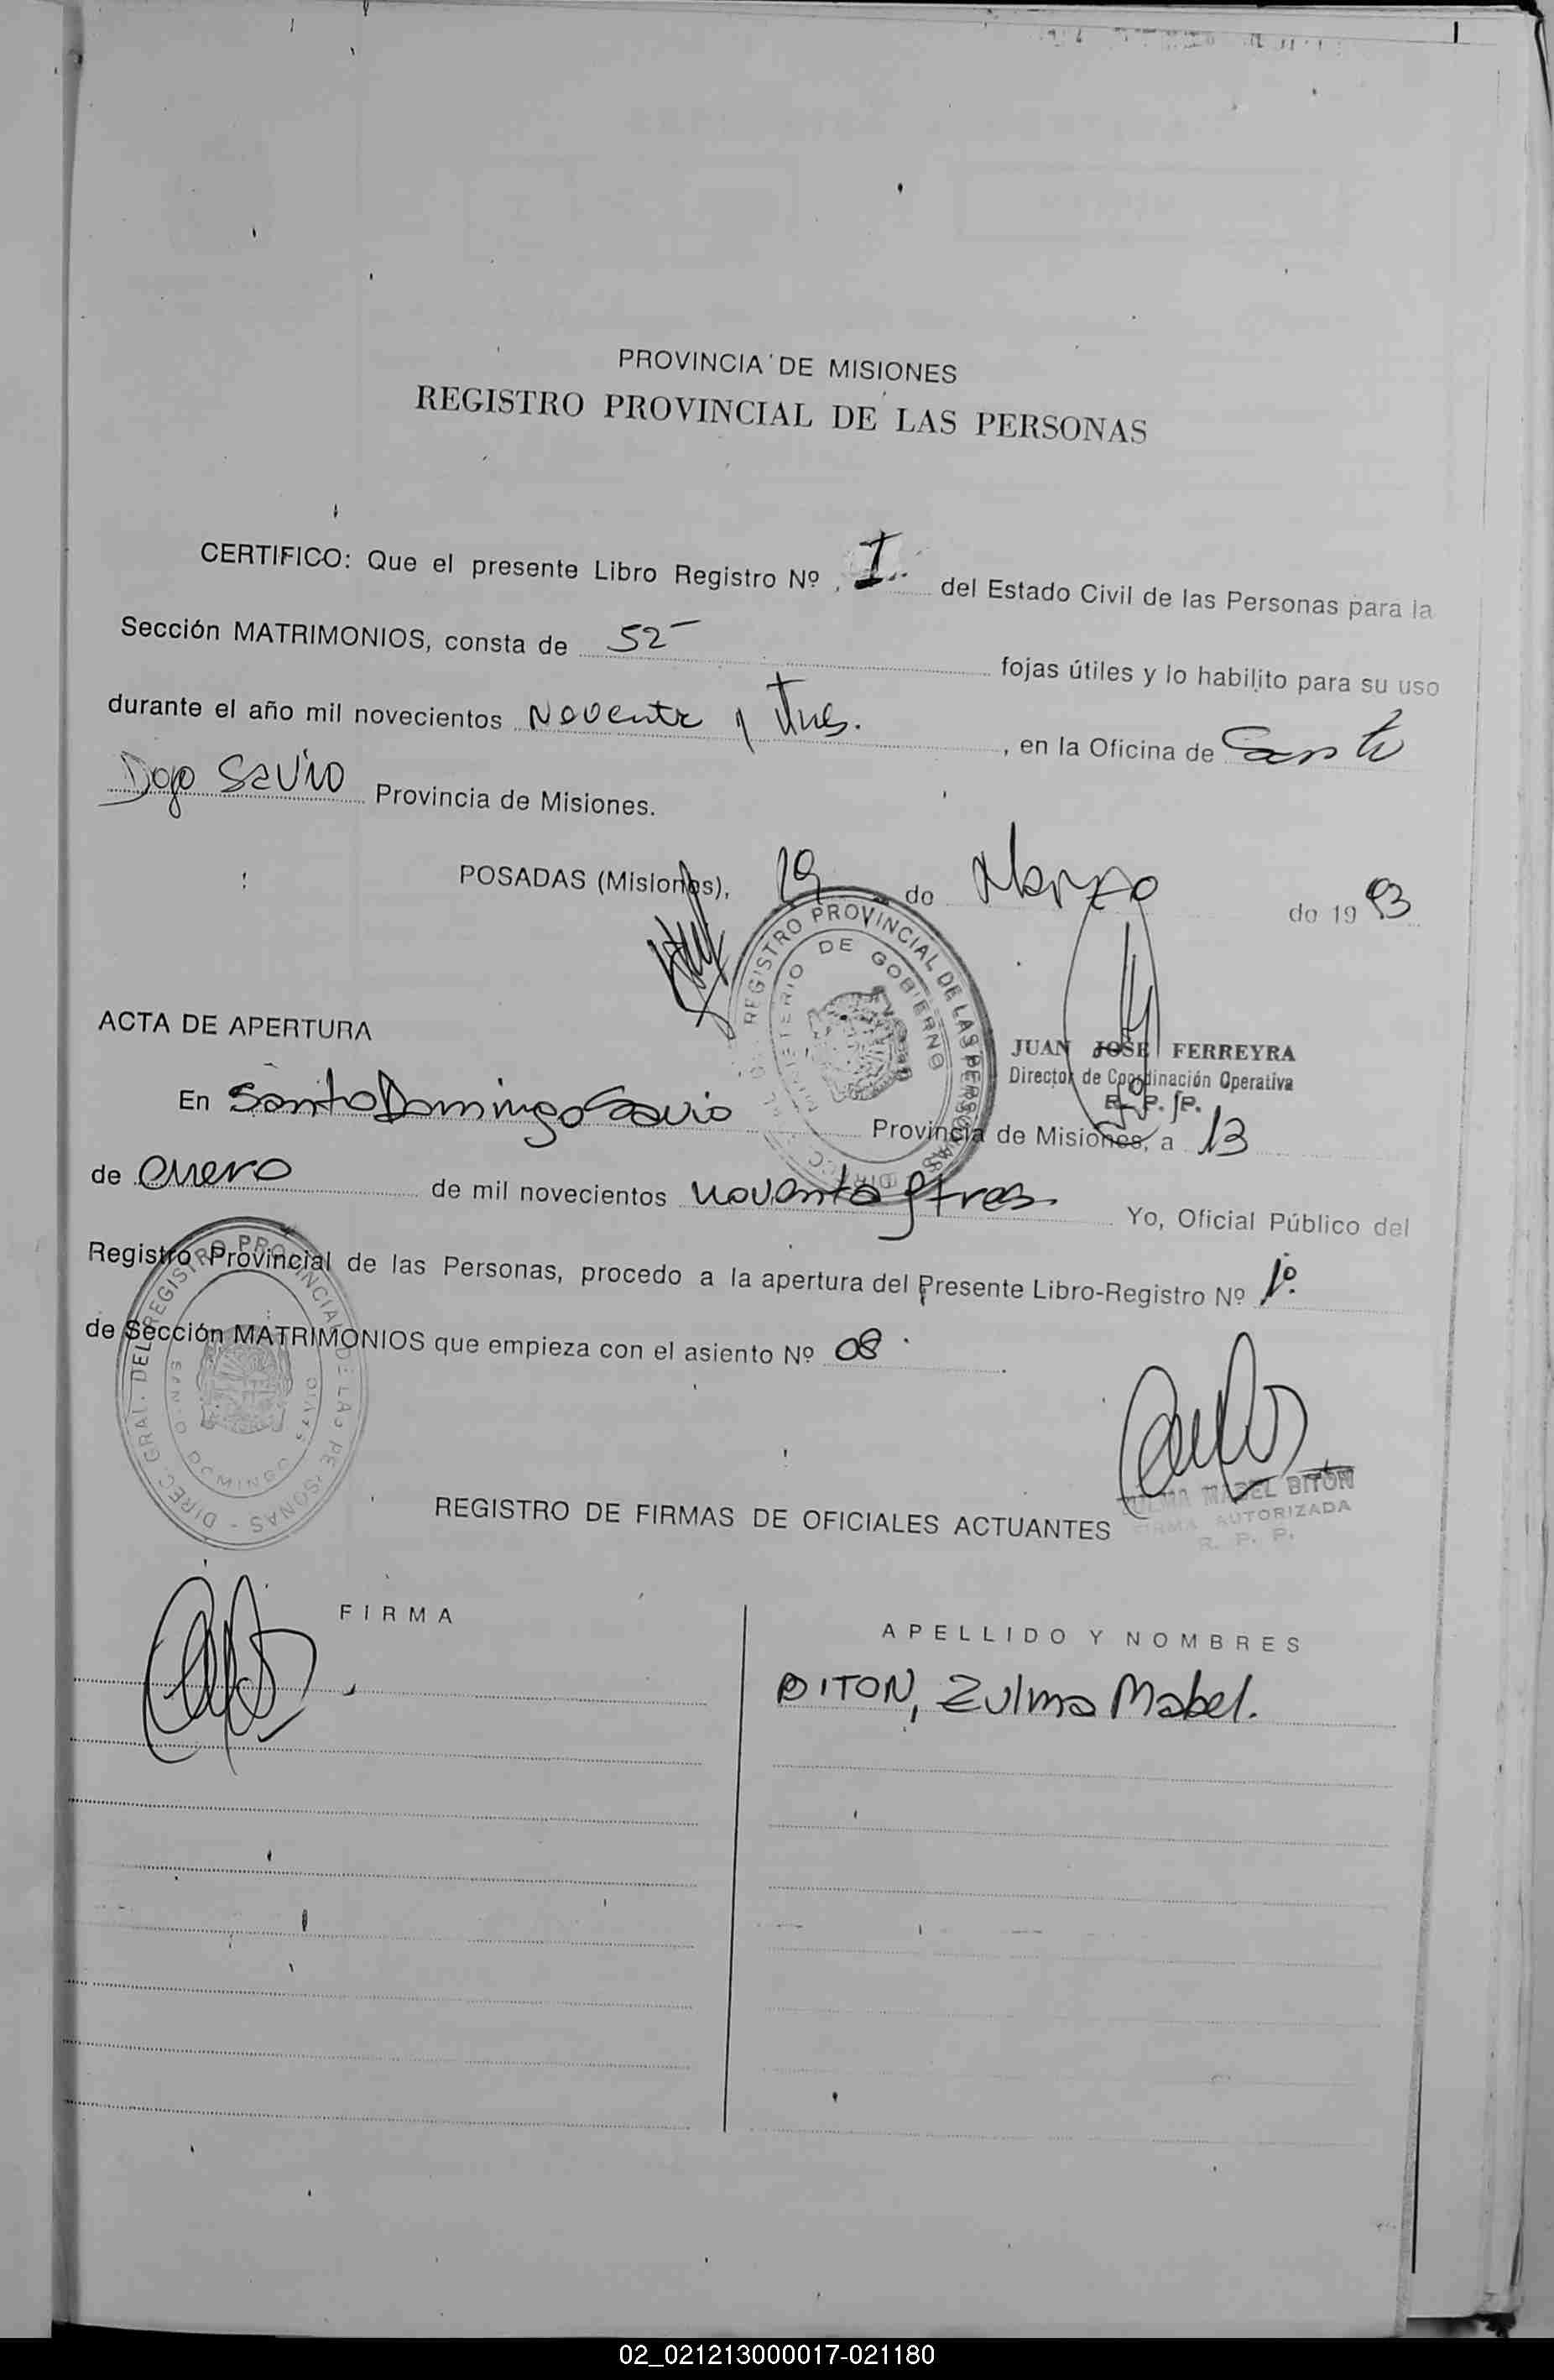 PROVINCIA DE MISIONES
REGISTRO PROVINCIAL DE LAS PERSONAS
CERTIFICO: Que el presente Libro Registro Nº I del Estado Civil de las Personas para la
Sección MATRIMONIOS, consta de 52 fojas útiles y lo habilito para su uso
durante el año mil novecientos Noventa y tres. , en la Oficina de Santo
Dgo Savio Provincia de Misiones.
POSADAS (Misiones), 19 de Marzo de 1993
REGISTRO PROVINCIAL DE LAS PERSONAS
MINISTERIO DE GOBIERNO
JUAN JOSE FERREYRA
Director de Coordinación Operativa
R. P. P.
ACTA DE APERTURA
En Santo Domingo Savio Provincia de Misiones, a 13
de enero de mil novecientos noventa y tres Yo, Oficial Público del
Registro Provincial de las Personas, procedo a la apertura del Presente Libro-Registro Nº 1º.
de Sección MATRIMONIOS que empieza con el asiento Nº 08.
DIREC. GRAL. DEL REGISTRO PROVINCIAL DE LAS PERSONAS
DOMINGO
ZULMA MABEL BITÓN
FIRMA AUTORIZADA
R. P. P.
REGISTRO DE FIRMAS DE OFICIALES ACTUANTES
FIRMA
APELLIDO Y NOMBRES
BITON, Zulma Mabel.
02_021213000017-021180